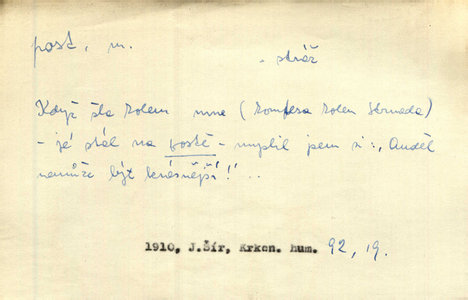 post, m.
- stráž
Když šla kolem mne (
- já stál na postě - myslil jsem si: „Anděl
nemůže být krásnější!" ..
1910, J.Šír, Krkon. hum. 92, 19.